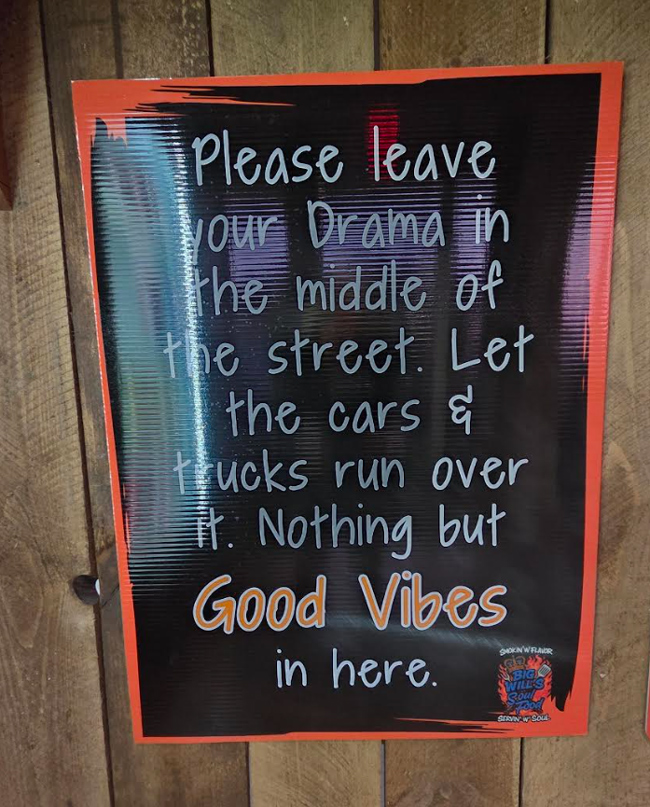 Please leave
your Drama in
the middle of
the street. Let
the cars &
trucks run over
it. Nothing but
Good Vibes
in here.
SMOKIN' W' FLAVOR
BIG
WILL'S
Soul
Food
SERVIN' W' SOUL